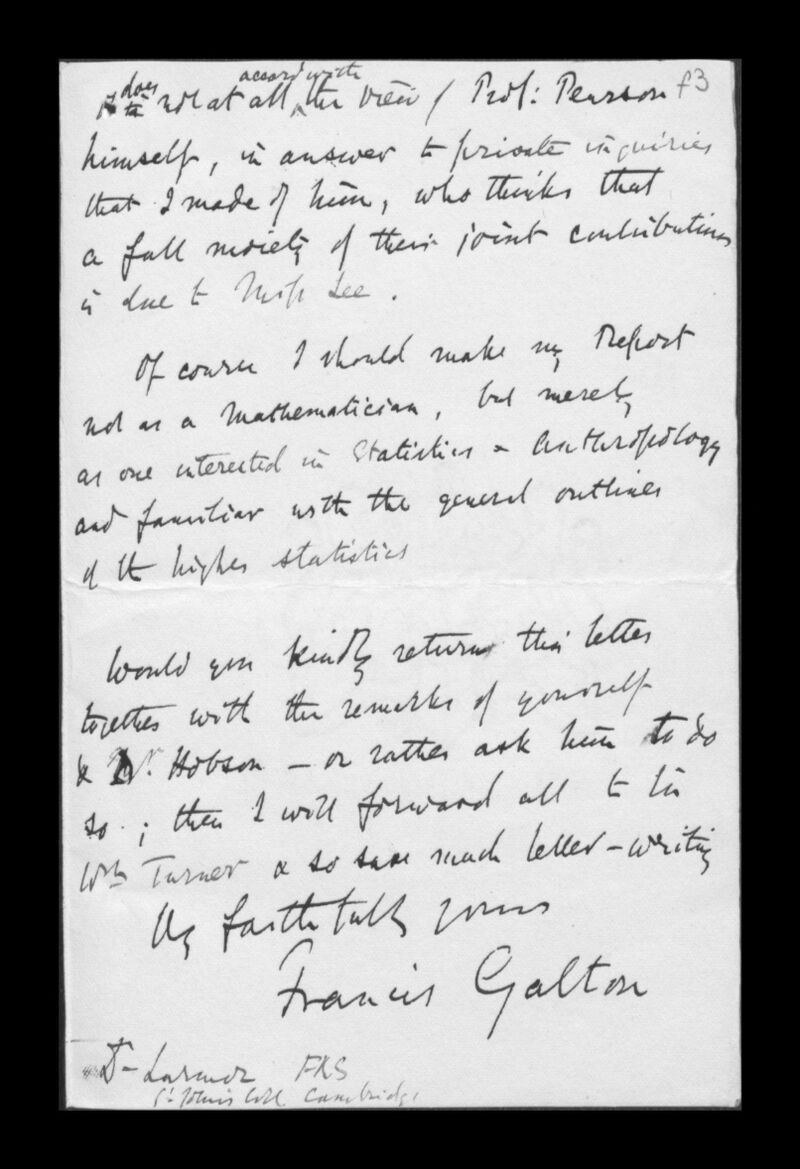 does accord with
not at all the view of Prof: Pearson f3
himself, in answer to private inquiries
that I made of him, who thinks that
a full moiety of their joint contributions
is due to Miss Lee.
Of course I should make my Report
not as a mathematician, but merely
as one interested in Statistics & Anthropology
and familiar with the general outlines
of the higher statistics
Would you kindly return this letter
together with the remarks of yourself
& Dr. Hobson – or rather ask him to do
so; then I will forward all to Sir
Wm Turner & so save much letter-writing
Vy faithfully yours
Francis Galton
Dr Larmor FRS
St John's Coll Cambridge